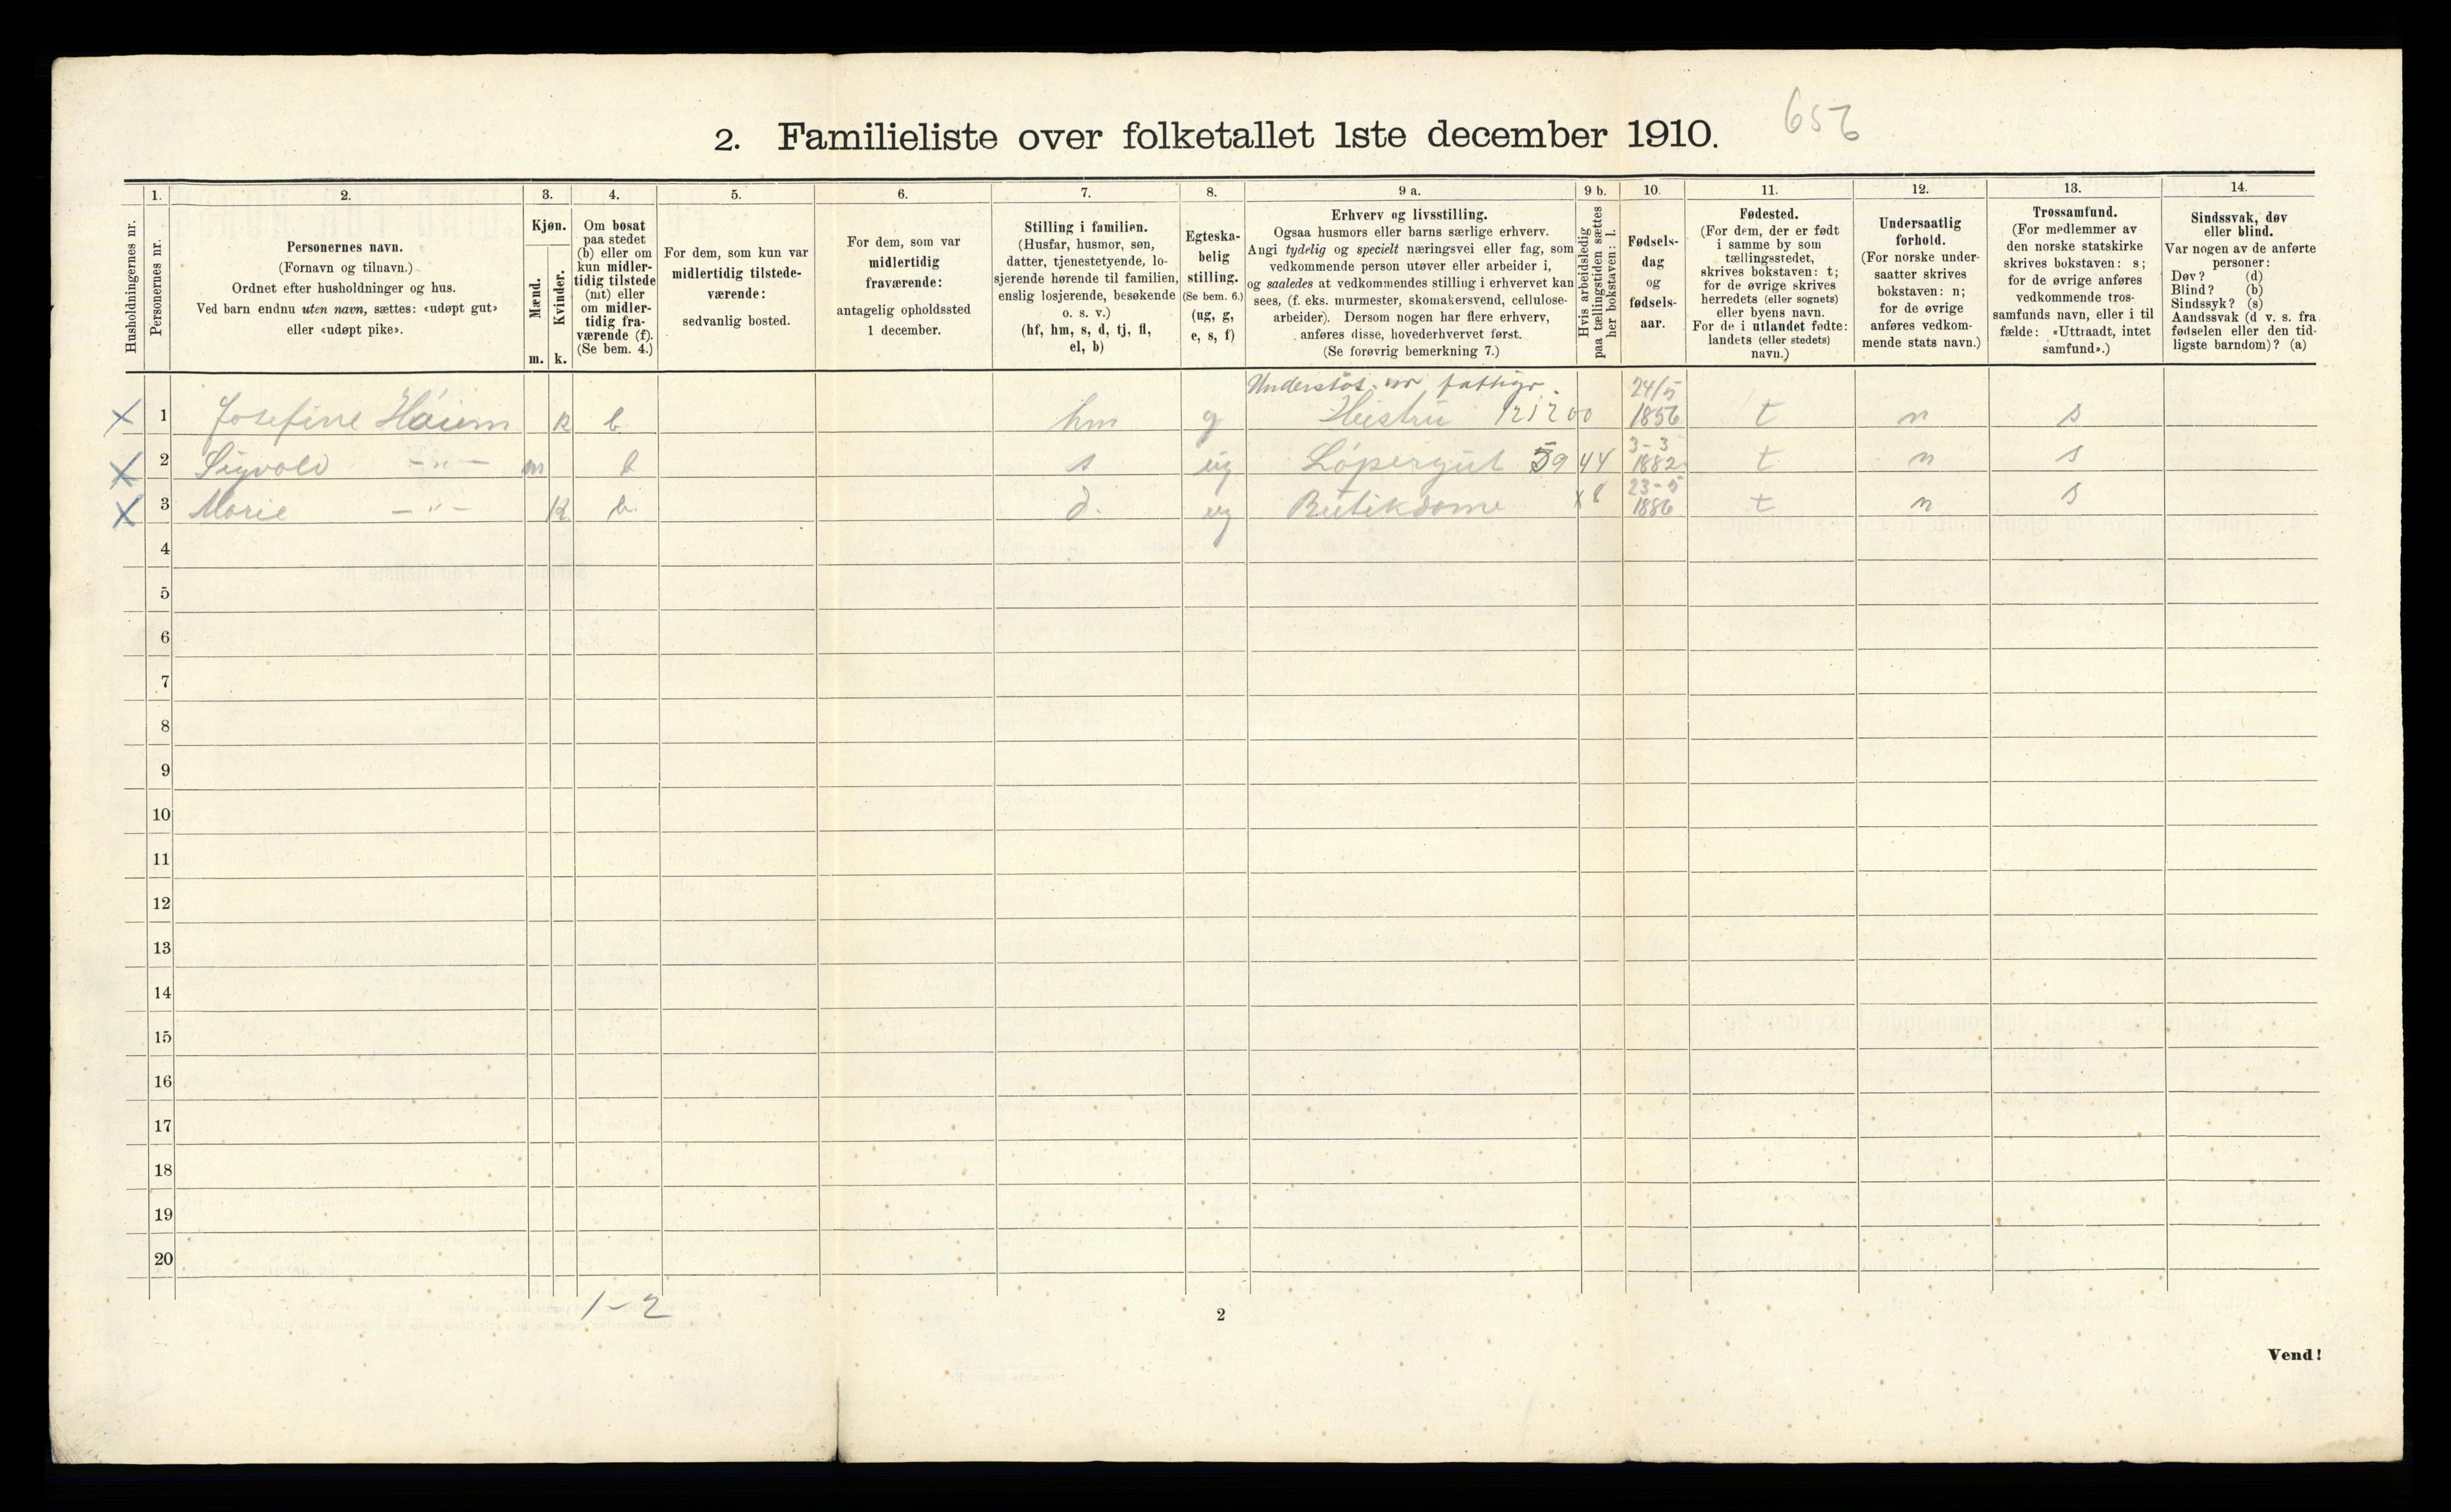 656
2. Familieliste over folketallet 1ste december 1910.
Husholdningernes nr.
1.
Personernes nr.
2.
Personernes navn.
(Fornavn og tilnavn.)
Ordnet efter husholdninger og hus.
Ved barn endnu uten navn, sættes: «udøpt gut»
eller «udøpt pike».
3.
Kjøn.
Mænd.
m.
Kvinder.
k.
4.
Om bosat
paa stedet
(b) eller om
kun midler-
tidig tilstede
(mt) eller
om midler-
tidig fra-
værende (f).
(Se bem. 4.)
5.
For dem, som kun var
midlertidig tilstede-
værende:
sedvanlig bosted.
6.
For dem, som var
midlertidig
fraværende:
antagelig opholdssted
1 december.
7.
Stilling i familien.
(Husfar, husmor, søn,
datter, tjenestetyende, lo-
sjerende hørende til familien,
enslig losjerende, besøkende
o. s. v.)
(hf, hm, s, d, tj, fl,
el, b)
8.
Egteska-
belig
stilling.
(Se bem. 6.)
(ug, g,
e, s, f)
9 a.
Erhverv og livsstilling.
Ogsaa husmors eller barns særlige erhverv.
Angi tydelig og specielt næringsvei eller fag, som
vedkommende person utøver eller arbeider i,
og saaledes at vedkommendes stilling i erhvervet kan
sees, (f. eks. murmester, skomakersvend, cellulose-
arbeider). Dersom nogen har flere erhverv,
anføres disse, hovederhvervet først.
(Se forøvrig bemerkning 7.)
9 b.
Hvis arbeidsledig
paa tællingstiden sættes
her bokstaven: l.
10.
Fødsels-
dag
og
fødsels-
aar.
11.
Fødested.
(For dem, der er født
i samme by som
tællingsstedet,
skrives bokstaven: t;
for de øvrige skrives
herredets (eller sognets)
eller byens navn.
For de i utlandet fødte:
landets (eller stedets)
navn.)
12.
Undersaatlig
forhold.
(For norske under-
saatter skrives
bokstaven: n;
for de øvrige
anføres vedkom-
mende stats navn.)
13.
Trossamfund.
(For medlemmer av
den norske statskirke
skrives bokstaven: s;
for de øvrige anføres
vedkommende tros-
samfunds navn, eller i til
fælde: «Uttraadt, intet
samfund».)
14.
Sindssvak, døv
eller blind.
Var nogen av de anførte
personer:
Døv? (d)
Blind? (b)
Sindssyk? (s)
Aandssvak (d v. s. fra
fødselen eller den tid-
ligste barndom)? (a)
Understøt. fattigv. 24/5
X 1 Josefine k b hm g Hustru 1856 t n s
X 2 Sigvald -"- m b s ug Løpergut 59 44 3-3 1882 t n s
X 3 Marie -"- k b d. ug Butikdame x8 23-5 1886 t n s
4
5
6
7
8
9
10
11
12
13
14
15
16
17
18
19
20
1-2
2
Vend!